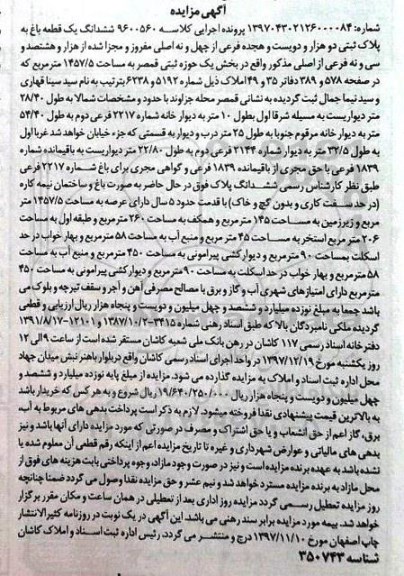 آگهی مزایده
شماره: ۱۳۹۷۰۴۳۰۲۱۲۶۰۰۰۰۸۴ پرونده اجرایی کلاسه ۹۶۰۰۵۶۰ ششدانگ یک قطعه باغ به
پلاک ثبتی دو هزار و دویست و هجده فرعی از چهل و نه اصلی مفروز و مجزا شده از هزار و هشتصد و
سی و نه فرعی از اصلی مذکور واقع در بخش یک حوزه ثبتی قمصر به مساحت ۱۴۵۷/۵ مترمربع که
در صفحه ۵۷۸ و ۳۸۹ دفاتر ۳۵ و ۴۹ املاک ذیل شماره ۵۱۹۲ و ۶۲۳۸ بترتیب به نام سید سینا قهاری
و سید نیما جمال ثبت گردیده به نشانی قمصر محله جزاوند با حدود و مشخصات شمالا به طول ۲۸/۴۰
متر دیواریست به مسیله شرقا اول بطول ۱۰ متر به دیوار خانه شماره ۲۲۱۷ فرعی دوم به طول ۵۴/۴۰
متر به دیوار خانه مرقوم جنوبا به طول ۲۵ متر درب و دیوار به قسمتی که جزء خیابان خواهد شد غربا اول
به طول ۳۲/۵ متر به دیوار شماره ۲۱۴۴ فرعی دوم به طول ۲۲/۸۰ متر دیواریست به باقیمانده شماره
۱۸۳۹ فرعی با حق مجری از باقیمانده ۱۸۳۹ فرعی و گواهی مجری برای باغ شماره ۲۲۱۷ فرعی
طبق نظر کارشناس رسمی ششدانگ پلاک فوق در حال حاضر به صورت باغ و ساختمان نیمه کاره
(در حد سفت کاری و بدون گچ و خاک) با قدمت حدود ۵ سال دارای عرصه به مساحت ۱۴۵۷/۵ متر
مربع و زیرزمین به مساحت ۱۴۵ متر مربع و همکف به مساحت ۲۶۰ مترمربع و طبقه اول به مساحت
۲۰۶ متر مربع استخر به مساحت ۴۵ متر مربع و منبع آب به مساحت ۵۸ مترمربع و بهار خواب در حد
اسکلت بمساحت ۹۰ مترمربع و دیوارکشی پیرامونی به مساحت ۴۵۰ مترمربع و منبع آب به مساحت
۵۸ مترمربع و بهار خواب در حد اسکلت به مساحت ۹۰ مترمربع و دیوار کشی پیرامونی به مساحت ۴۵۰
مترمربع دارای امتیازهای شهری آب و گاز و برق با مصالح مصرفی آهن و آجر و سقف تیرچه و بلوک می
باشد جمعا به مبلغ نوزده میلیارد و ششصد و چهل میلیون و دویست و پنجاه هزار ریال ارزیابی و قطعی
گردیده ملکی نامبردگان بالا که طبق اسناد رهنی شماره ۳۴۱۵-۱۳۸۷/۱۰/۲ و ۱۲۱۰۱-۱۳۹۱/۸/۱۷
دفترخانه اسناد رسمی ۱۱۷ کاشان در رهن بانک ملی شعبه کاشان مستقر شده است از ساعت ۹ الی ۱۲
روز یکشنبه مورخ ۱۳۹۷/۱۲/۱۹ در واحد اجرای اسناد رسمی کاشان واقع دربلوار باهنر نبش میدان جهاد
محل اداره ثبت اسناد و املاک به مزایده گذارده می شود. مزایده از مبلغ پایه نوزده میلیارد و ششصد و
چهل میلیون و دویست و پنجاه هزار ریال ۱۹/۶۴۰/۲۵۰/۰۰۰ ریال شروع و به هر کس که خریدار باشد
به بالاترین قیمت پیشنهادی نقدا فروخته میشود. لازم به ذکر است پرداخت بدهی های مربوط به آب،
برق، گاز اعم از حق انشعاب و یا حق اشتراک و مصرف در صورتی که مورد مزایده دارای آنها باشد و نیز
بدهی های مالیاتی و عوارض شهرداری و غیره تا تاریخ مزایده اعم از اینکه رقم قطعی آن معلوم شده یا
نشده باشد به عهده برنده مزایده است و نیز در صورت وجود مازاد، وجوه پرداختی بابت هزینه های فوق از
محل مازاد به برنده مزایده مسترد خواهد شد و نیم عشر و حق مزایده نقدا وصول می گردد ضمنا چنانچه
روز مزایده تعطیل رسمی گردد مزایده روز اداری بعد از تعطیلی در همان ساعت و مکان مقرر برگزار
خواهد شد. بیمه مورد مزایده برابر سند رهنی می باشد. این آگهی در یک نوبت در روزنامه کثیرالانتشار
چاپ اصفهان مورخ ۱۳۹۷/۱۱/۱۰ درج و منتشر می گردد. رئیس اداره ثبت اسناد و املاک کاشان
شناسه ۳۵۰۷۴۳